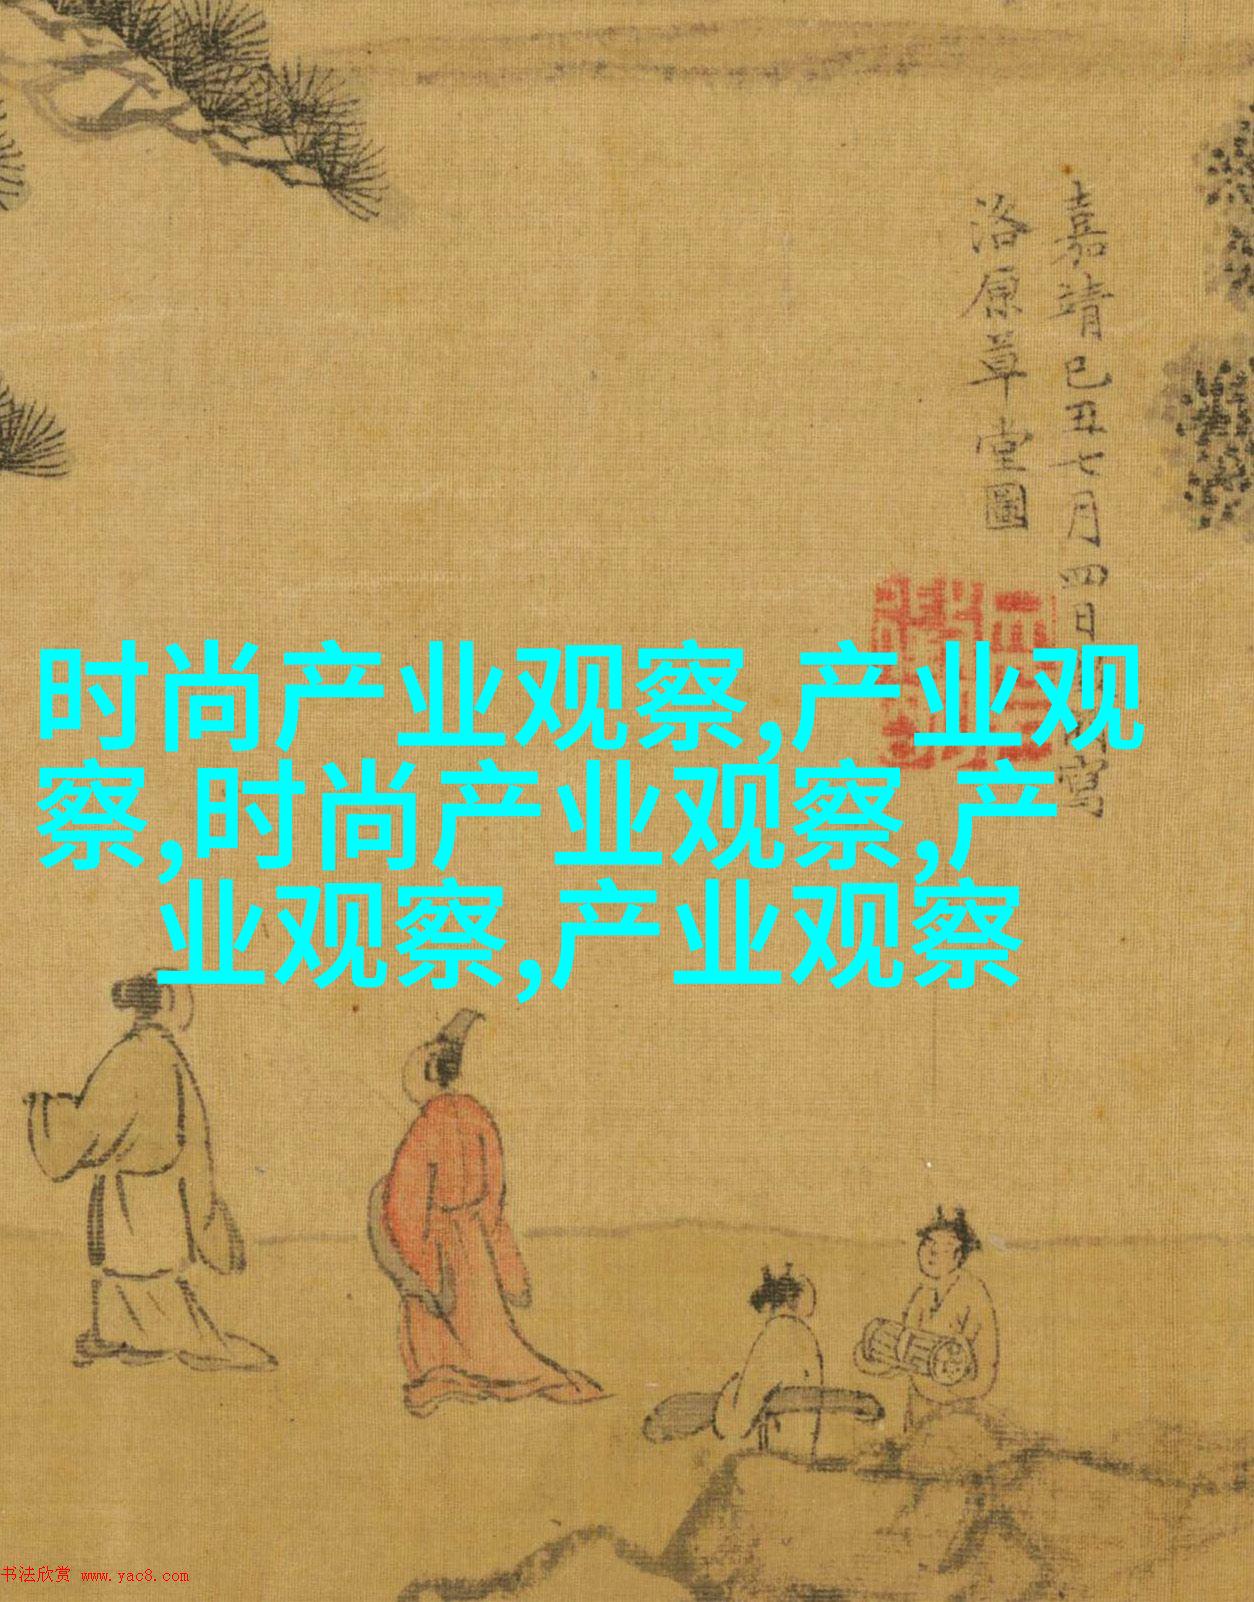 嘉靖己丑七月四日
洛原草堂圖
时尚产业观察,产业观
察,时尚产业观察,产
业观察,产业观察
书法欣赏 www.yac8.com